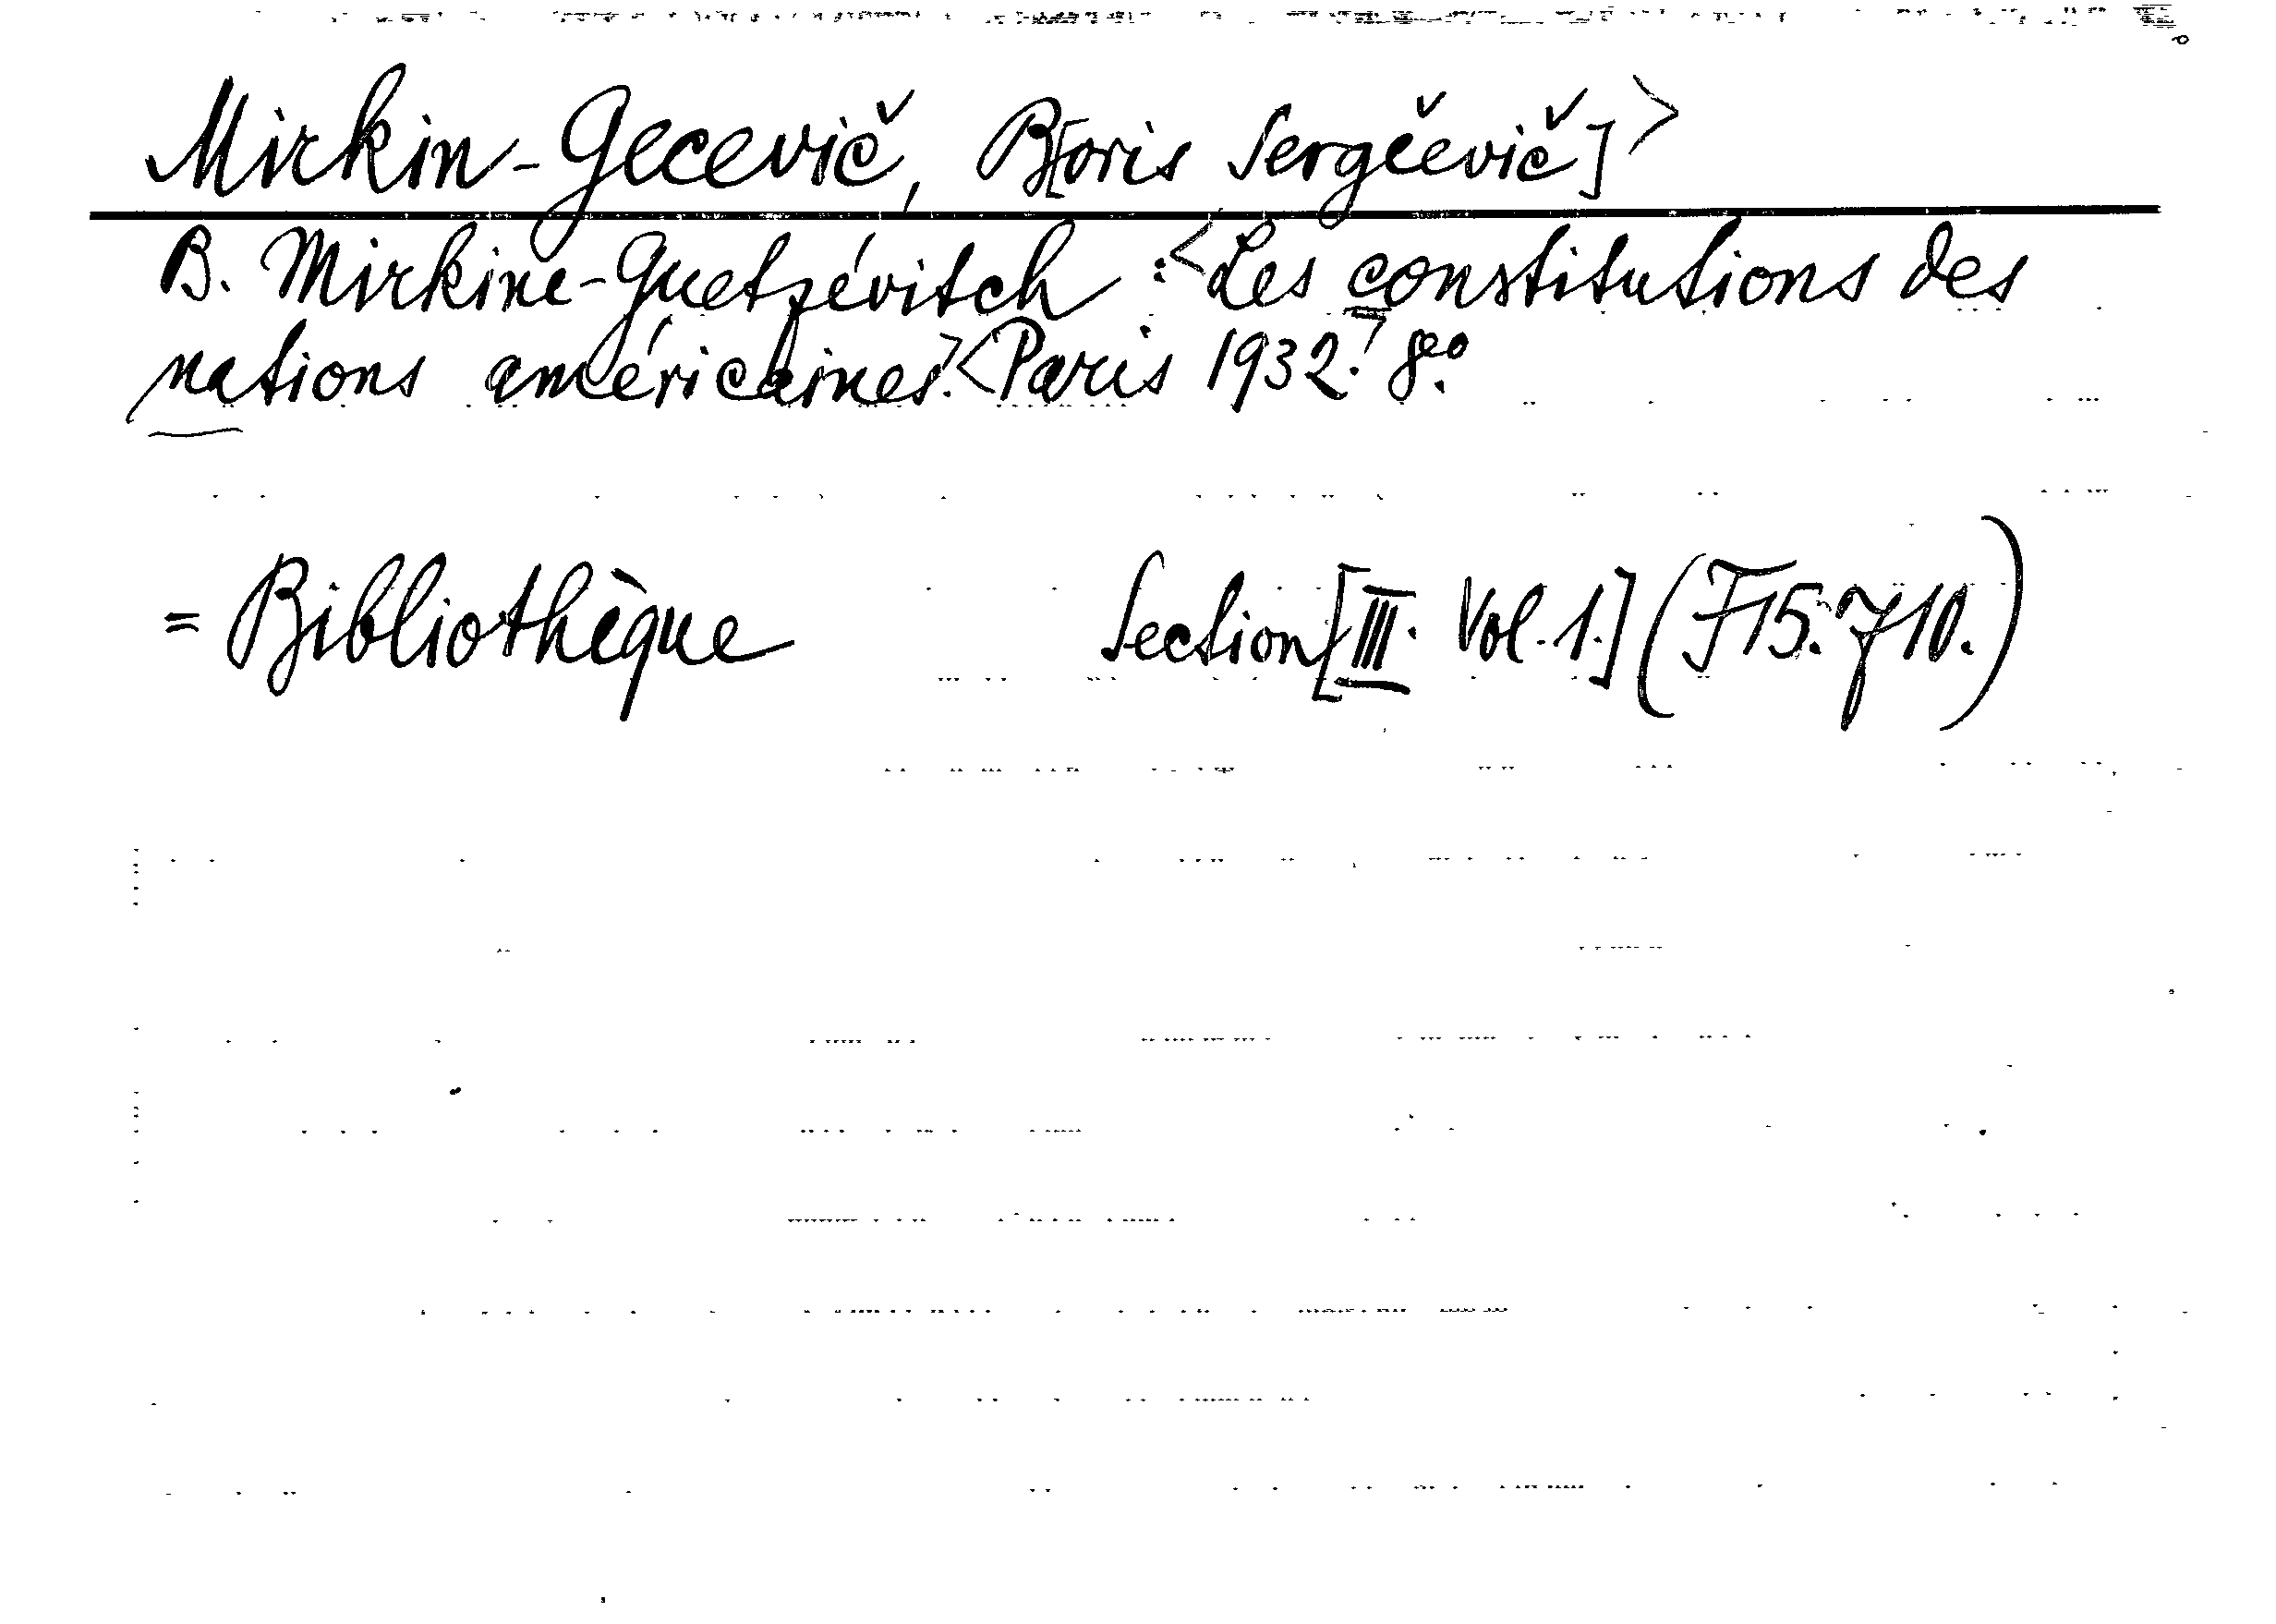 Mirkin-Gecevič, B[oris Sergěevič]>
B. Mirkine-Guetzévitch : <Les constitutions des
nations américaines.> <Paris 1932.> 8º.
= Bibliothèque Section [III. Vol. 1.] (F15.710.)